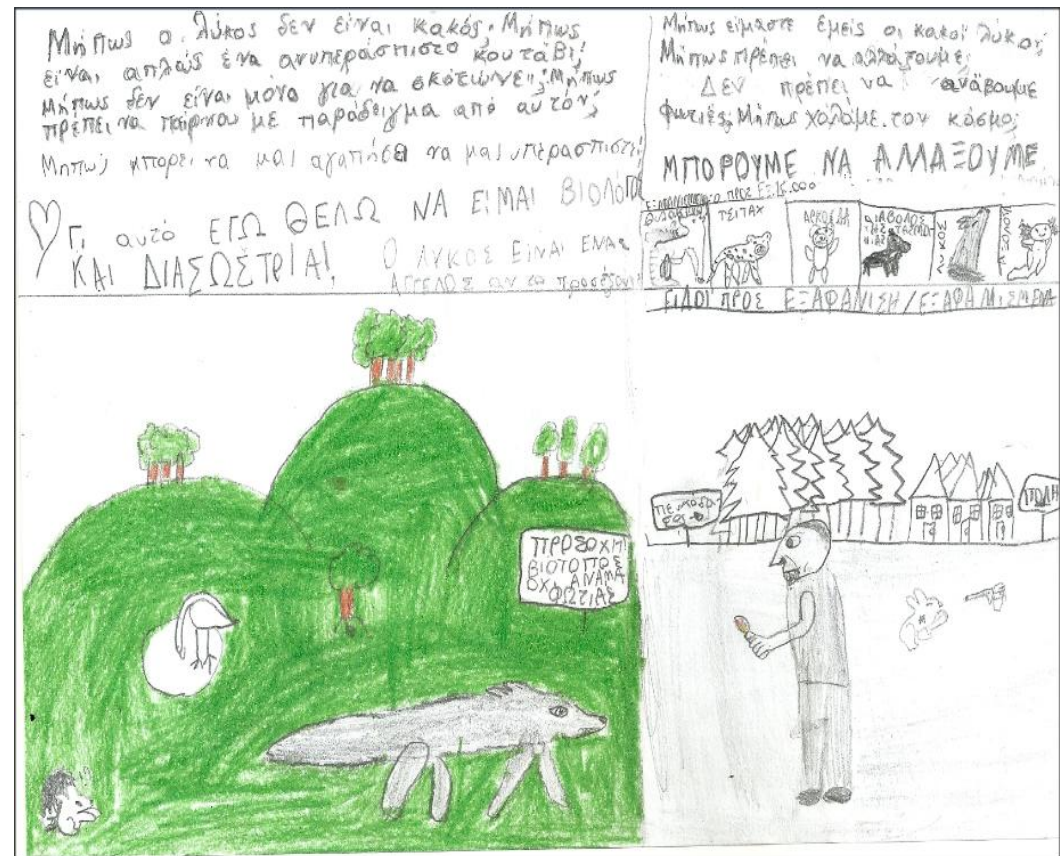 Μήπως ο λύκος δεν είναι κακός; Μήπως
είναι απλώς ένα ανυπεράσπιστο κουτάβι;
Μήπως δεν είναι μόνο για να σκοτώνει; Μήπως
πρέπει να παίρνου με παράδειγμα από αυτόν;
Μήπως μπορεί να μας αγαπήσει να μας υπερασπιστεί;
Γι αυτό ΕΓΩ ΘΕΛΩ ΝΑ ΕΙΜΑΙ ΒΙΟΛΟΓΟΣ
ΚΑΙ ΔΙΑΣΩΣΤΡΙΑ!
Ο ΛΥΚΟΣ ΕΙΝΑΙ ΕΝΑΣ
ΑΓΓΕΛΟΣ αν το προσέξουμε
Μήπως είμαστε εμείς οι κακοί λύκοι;
Μήπως πρέπει να αλλάξουμε;
Δεν πρέπει να ανάβουμε
φωτιές; Μήπως χαλάμε τον κόσμο;
ΜΠΟΡΟΥΜΕ ΝΑ ΑΛΛΑΞΟΥΜΕ
ΤΣΙΤΑΧ
ΑΡΚΟΥΔΑ
ΔΙΑΒΟΛΟΣ
ΤΗΣ ΤΑΣΜΑ
ΝΙΑΣ
ΕΙΔΟΙ ΠΡΟΣ ΕΞΑΦΑΝΙΣΗ/ΕΞΑΦΑΝΙΣΜΕΝΑ
ΠΟΛΗ
ΠΡΟΣΟΧΗ!
ΒΙΟΤΟΠΟΣ
ΟΧΙ ΑΝΑΜΑ
ΦΩΤΙΑΣ